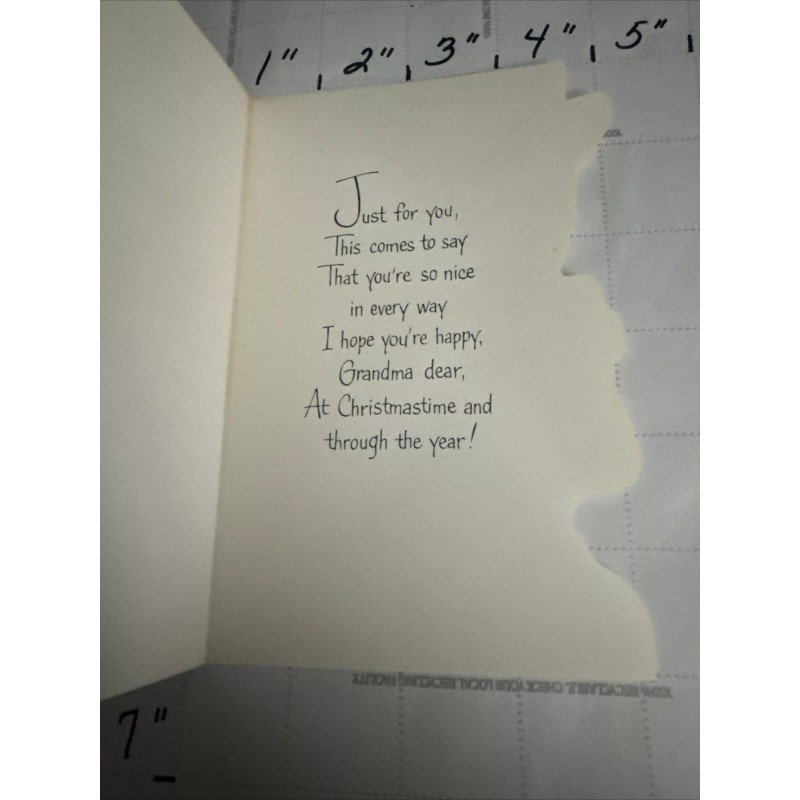 1" 2" 3" 4" 5"
Just for you,
This comes to say
That you're so nice
in every way
I hope you're happy,
Grandma dear,
At Christmastime and
through the year!
100% RECYCLABLE. CHECK YOUR LOCAL RECYCLING FACILITY.
7"